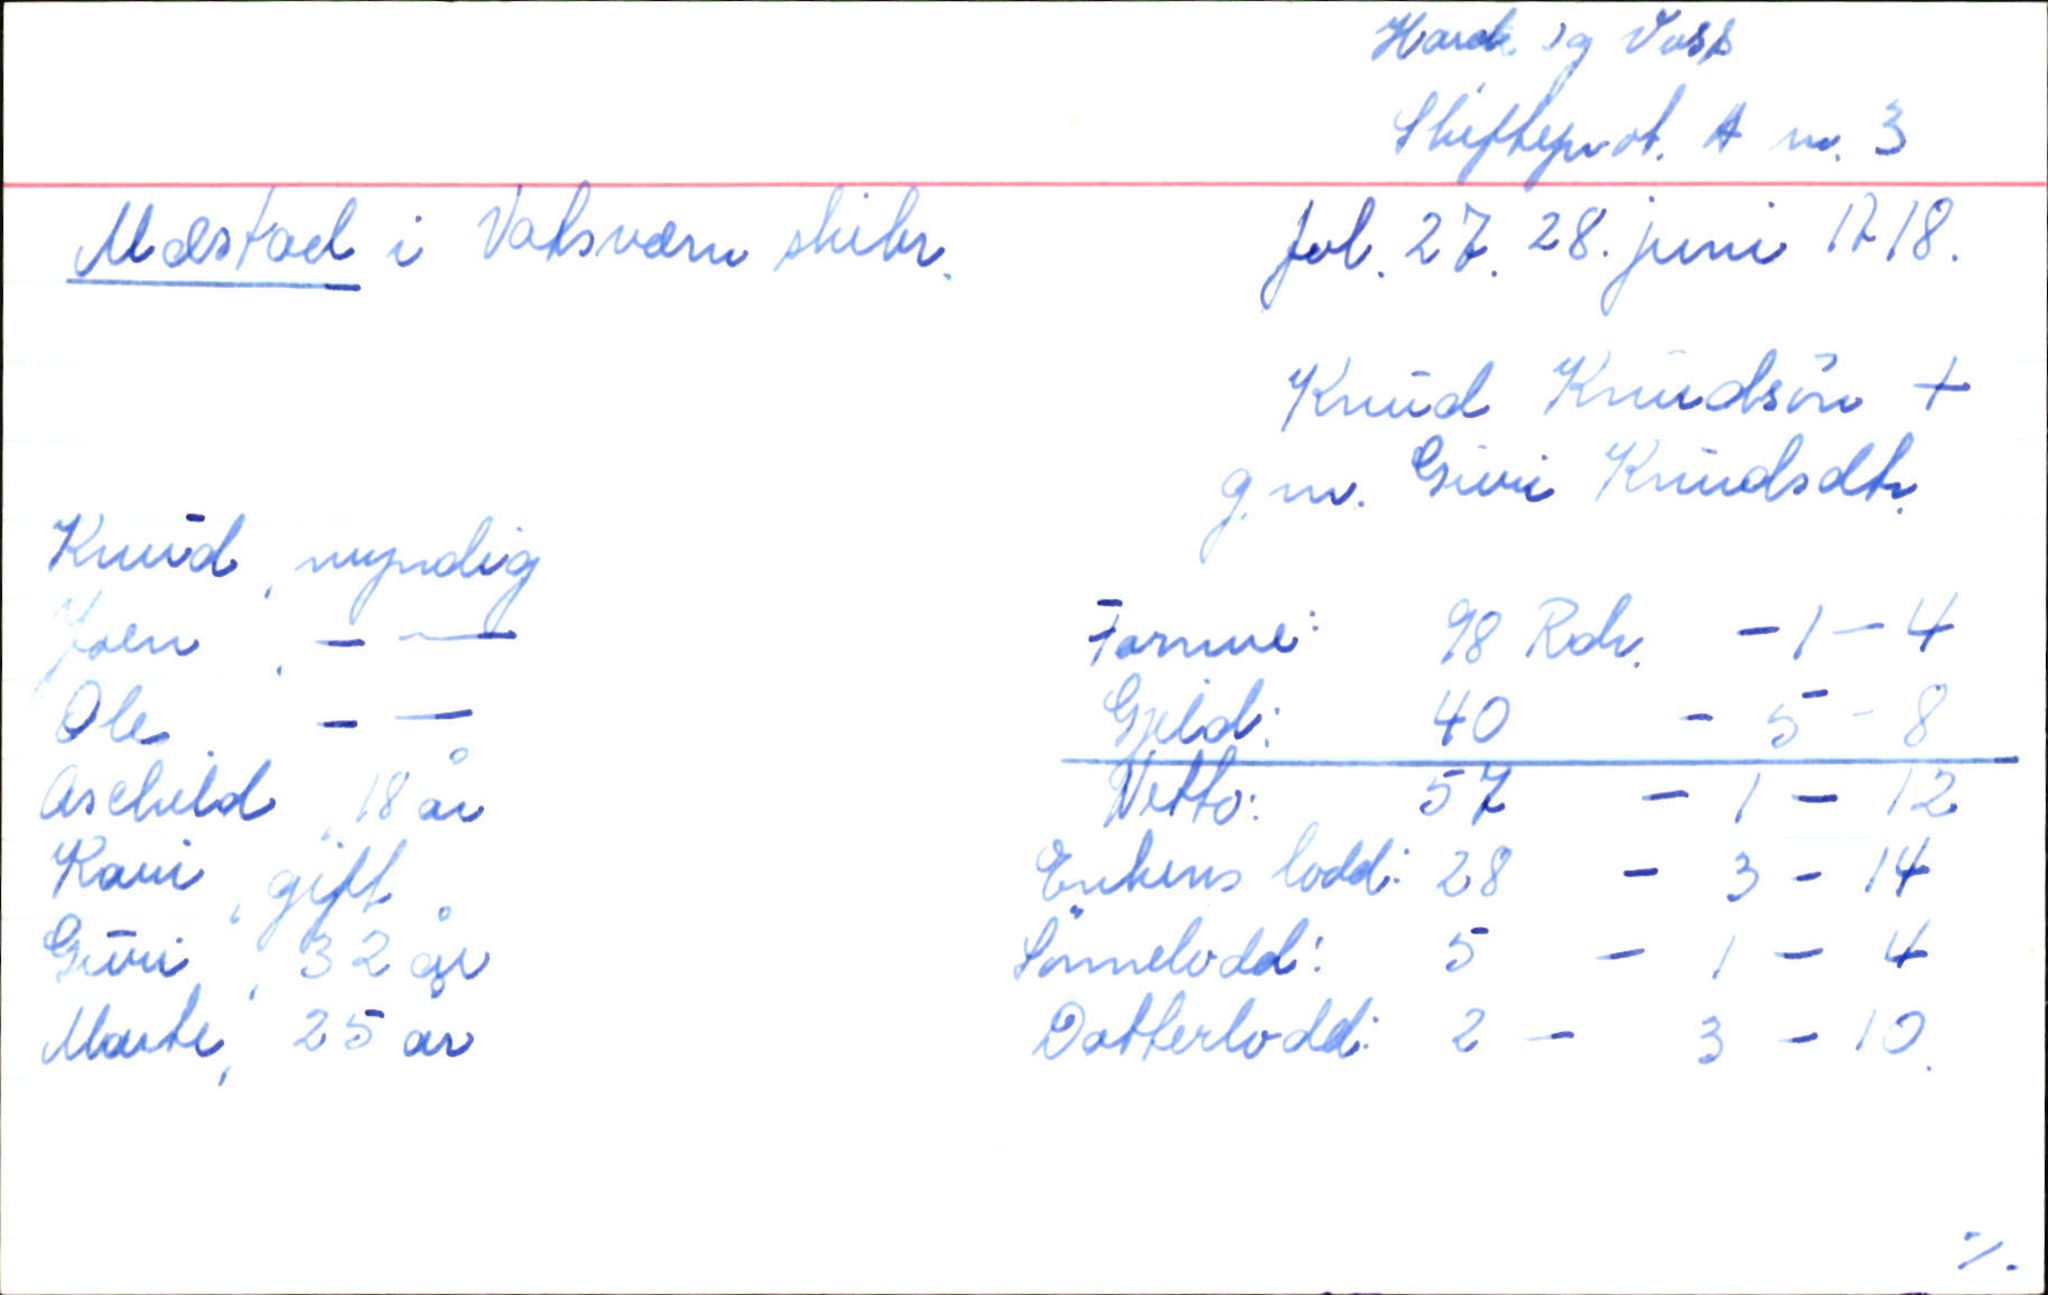 Hard. og Voss
Skifteprot. A nr. 3
Mæstad i Vatsværn skibr. fol. 27. 28. juni 1718.
Knud Knudsön +
g.m. Guri Knudsdtr.
Knud, myndig
Joen, - —
Ole - —
Aschild, 18 år
Kari, gift
Guri, 32 år
Marte, 25 år
Formue: 98 Rdr. - 1 - 4
Gjeld: 40 - 5 - 8
Netto: 57 - 1 - 12
Enkens lodd: 28 - 3 - 14
Sönnelodd: 5 - 1 - 4
Dotterlodd: 2 - 3 - 10.
./.